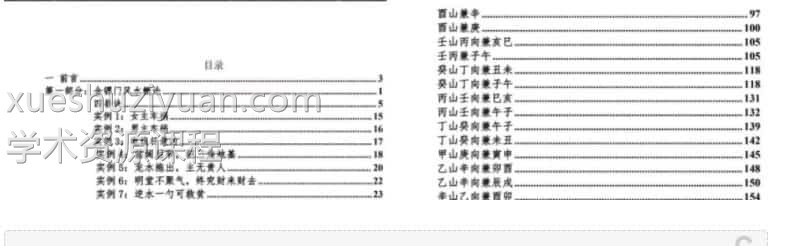 目录
一 前言 3
第一部分：金锁门风水 1
5
实例1：女主车祸 15
实例2：男主车祸 16
实例3： 17
18
实例5：龙水拖出，主无贵人 20
实例6：明堂不聚气，终究财来财去 22
实例7：逆水一勺可救贫 23
xueshuziyuan.com
学术资源课程
酉山兼辛 97
酉山兼庚 100
壬山丙向兼亥巳 105
壬丙兼子午 105
癸山丁向兼丑未 118
癸山丁向兼子午 118
丙山壬向兼巳亥 131
丙山壬向兼午子 132
丁山癸向兼午子 139
丁山癸向兼未丑 142
甲山庚向兼寅申 145
乙山辛向兼卯酉 148
乙山辛向兼辰戌 150
辛山乙向兼酉卯 154